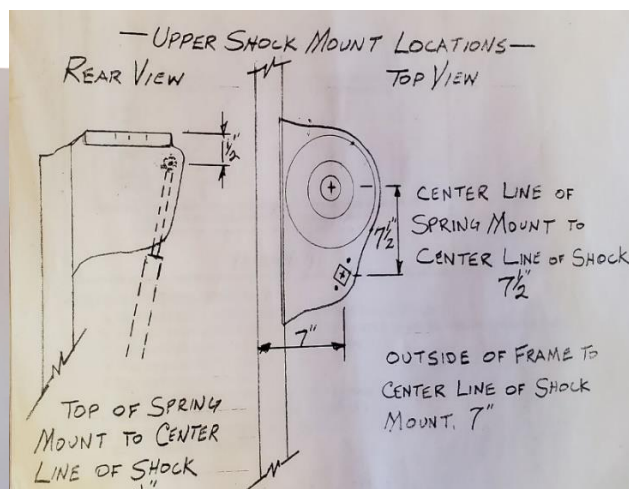 —UPPER SHOCK MOUNT LOCATIONS—
REAR VIEW
TOP VIEW
7½"
7"
CENTER LINE OF
SPRING MOUNT TO
CENTER LINE OF SHOCK
7½"
OUTSIDE OF FRAME TO
CENTER LINE OF SHOCK
MOUNT. 7"
TOP OF SPRING
MOUNT TO CENTER
LINE OF SHOCK